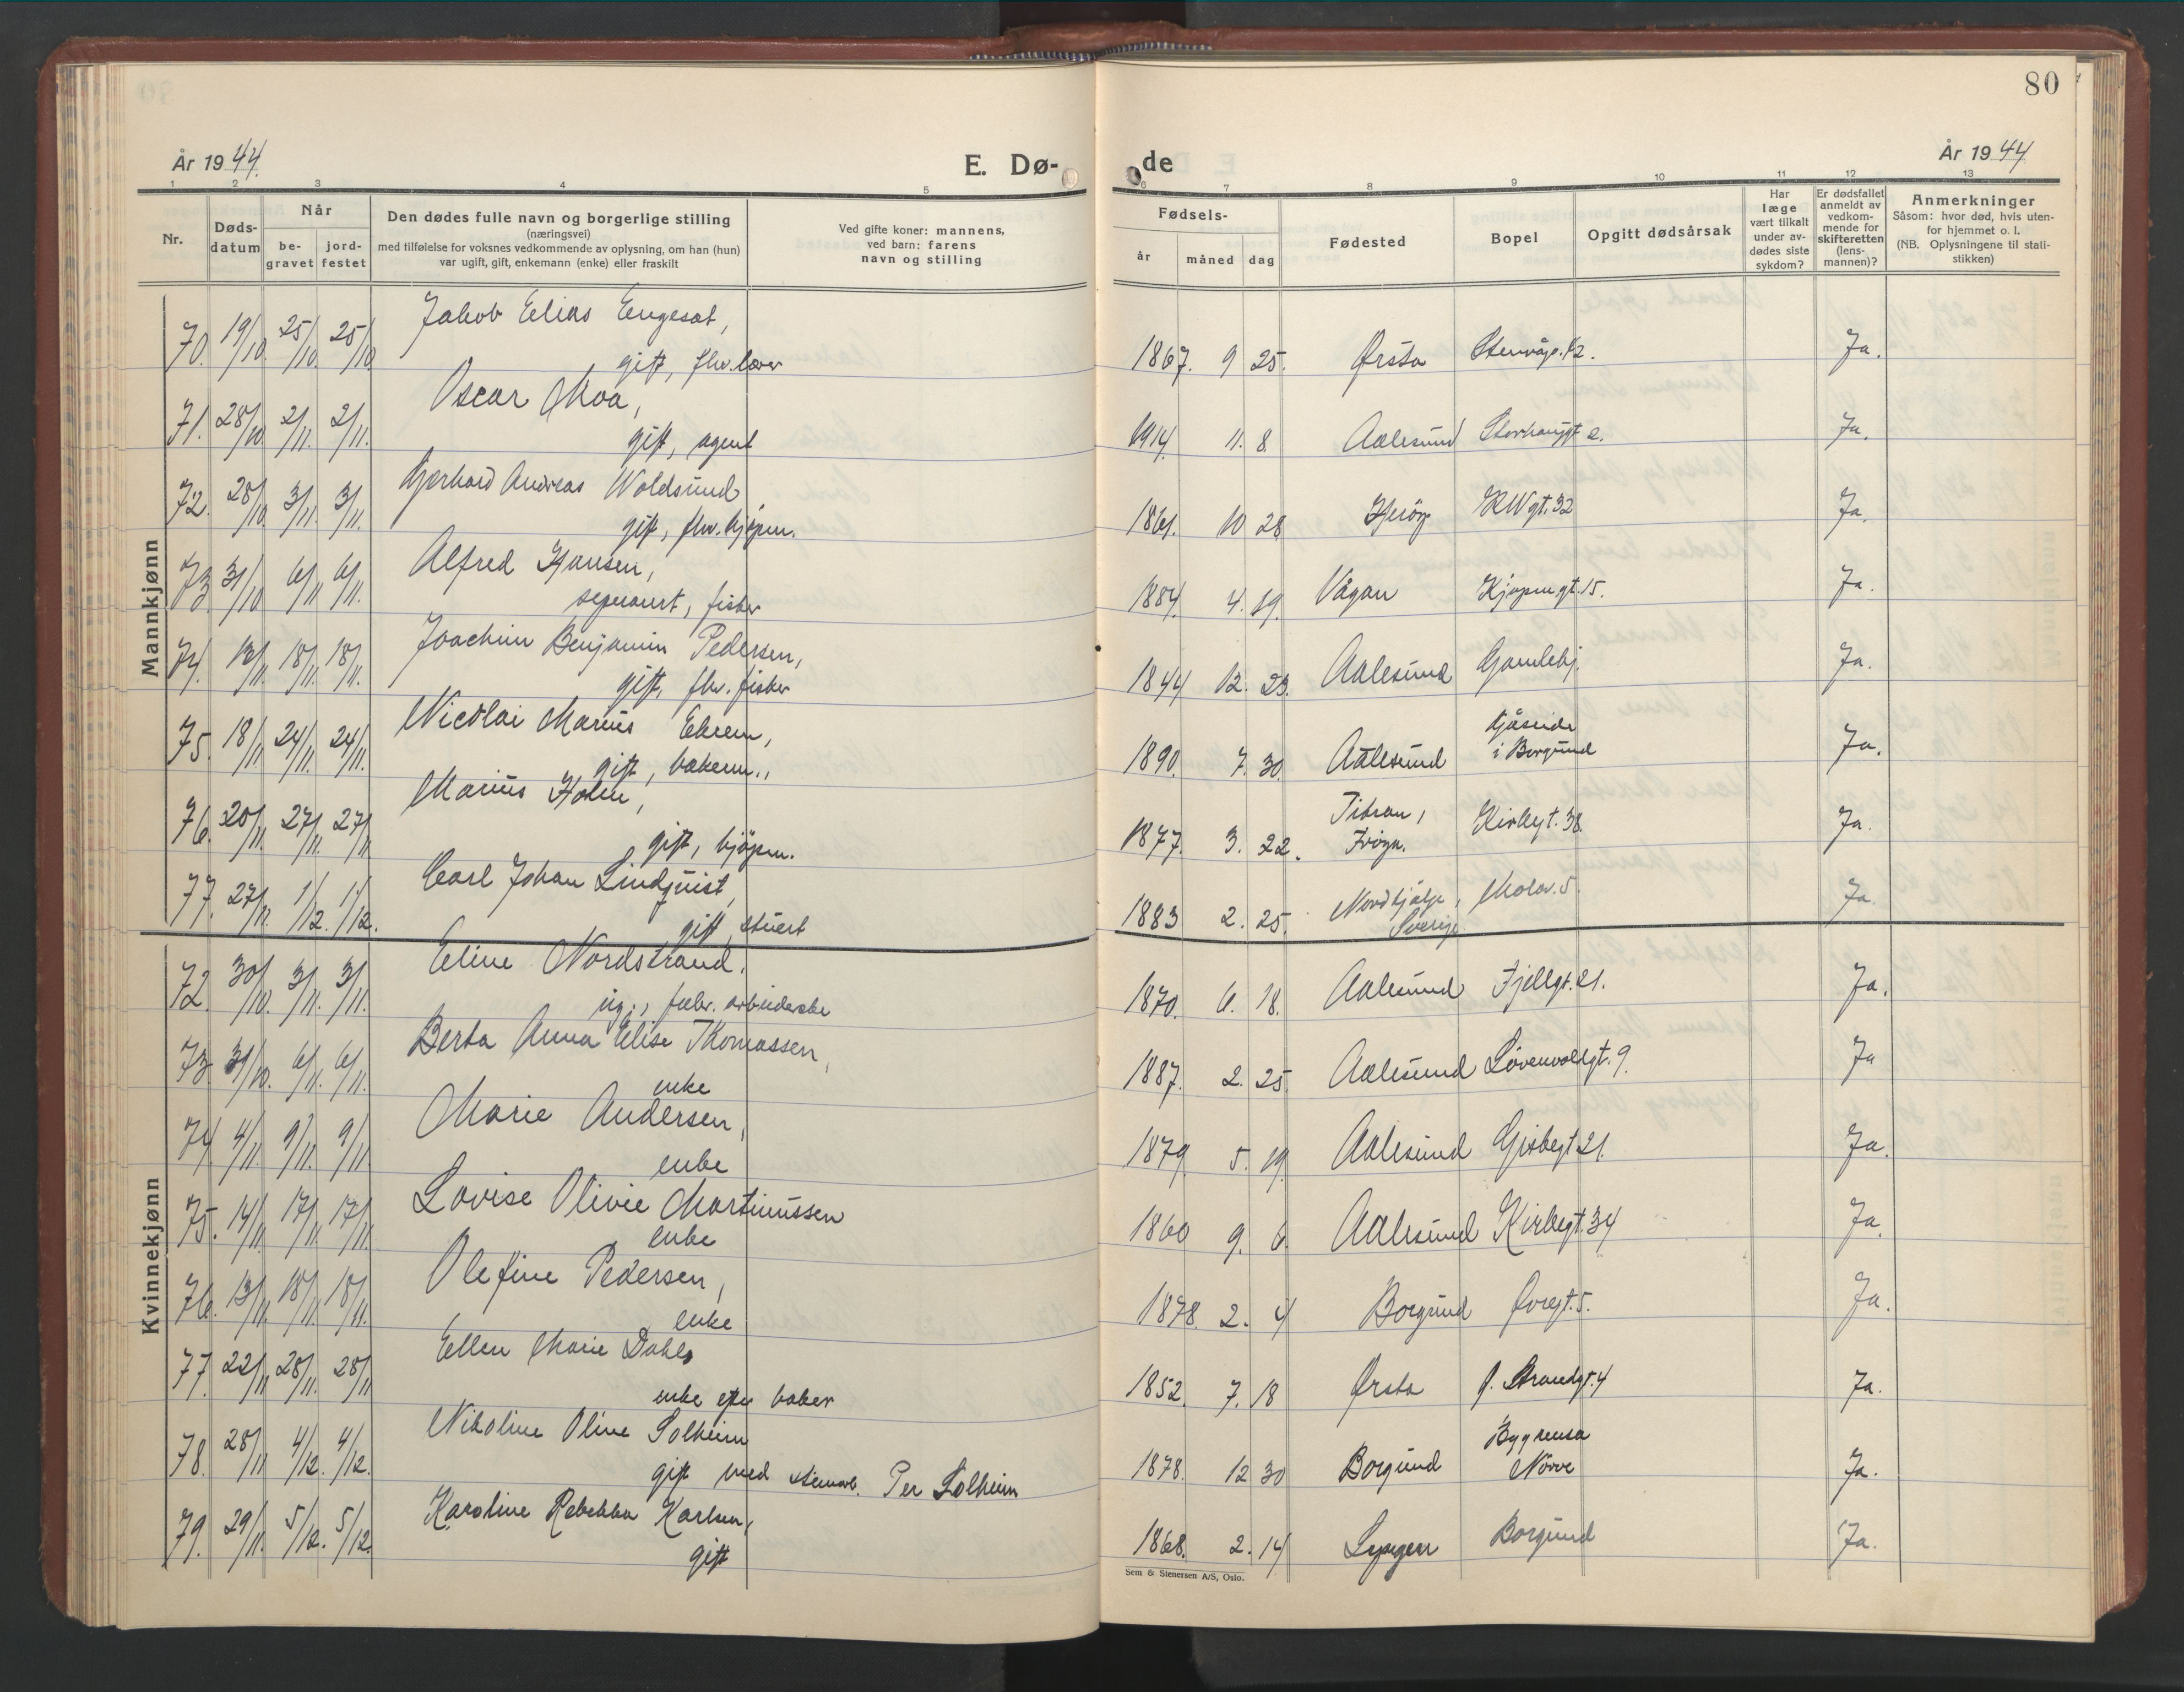 80
År 1944.
E. Dø-
de
År 1944
1 2 3 4 5 6 7 8 9 10 11 12 13
Nr.
Døds-
datum
Når
be-
gravet
jord-
festet
Den dødes fulle navn og borgerlige stilling
(næringsvei)
med tilføielse for voksnes vedkommende av oplysning, om han (hun)
var ugift, gift, enkemann (enke) eller fraskilt
Ved gifte koner: mannens,
ved barn: farens
navn og stilling
Fødsels-
år måned dag
Fødested
Bopel
Opgitt dødsårsak
Har
læge
vært tilkalt
under av-
dødes siste
sykdom?
Er dødsfallet
anmeldt av
vedkom-
mende for
skifteretten
(lens-
mannen)?
Anmerkninger
Såsom: hvor død, hvis uten-
for hjemmet o. l.
(NB. Oplysningene til stati-
stikken)
Mannkjønn
70. 19/10. 25/10. 25/10 Jakob Elias Engeset, 1867. 9 25. Ørsta Stenvågv. 12. Ja.
gift, fhv. lærer
71. 28/10. 2/11. 2/11. Oscar Moa, 1914. 11. 8. Aalesund Storhaugt 2. Ja.
gift, agent
72. 28/10. 3/11. 3/11. Gerhard Andreas Voldsund 1861. 10 28 Herøy KWgt. 32 Ja.
gift, fhv. kjøpm.
73. 31/10 6/11 6/11. Alfred Hansen, 1884. 4. 19. Vågan Kjøpmgt. 15. Ja.
separert, fisker
74. 13/11. 18/11. 18/11. Joachim Benjamin Pedersen, 1844 12. 23. Aalesund Gamlehj. Ja.
gift, fhv. fisker
75. 18/11 24/11. 24/11. Nicolai Marius Ekrem, 1890. 7. 30. Aalesund Gåseide
i Borgund Ja.
gift, bakerm.,
76. 20/11. 27/11. 27/11 Marius Holm, 1877. 3. 22. Titran,
Frøya. Kirkegt. 38. Ja.
gift, kjøpm.
77. 27/11. 1/12. 1/12. Carl Johan Lindquist, 1883 2. 25. Nordkjøbg,
Sverige Molov. 5. Ja.
gift, stuert
Kvinnekjønn
72. 30/10. 3/11. 3/11. Eline Nordstrand. 1870. 6. 18. Aalesund Fjellgt. 21. Ja.
ug., fabr. arbeiderske
73. 31/10. 6/11. 6/11. Berta Anna Elise Thomassen, 1887. 2. 25. Aalesund Løvenvoldgt. 9. Ja
enke
74. 4/11. 9/11. 9/11. Marie Andersen, 1879. 5. 19. Aalesund Giskegt 21. Ja.
enke
75. 14/11. 17/11. 17/11. Lovise Olivie Martinussen 1860 9. 6. Aalesund Kirkegt. 34 Ja.
enke
76. 13/11. 18/11. 18/11. Olefine Pedersen, 1878. 2. 4 Borgund Øvregt. 5. Ja.
enke
77. 22/11 28/11. 28/11 Ellen Marie Dahl, 1852. 7. 18 Ørsta Ø. Strandgt. 4 Ja.
enke efter baker
78. 28/11 4/12. 4/12. Nikoline Oline Solheim 1878. 12 30 Borgund Bygrensa
Nørve Ja.
gift med stenarb. Per Solheim
79. 29/11. 5/12. 5/12. Karoline Rebekka Karlsen, 1868. 2. 14 Lyngen Borgund Ja.
gift
Sem & Stenersen A/S, Oslo.